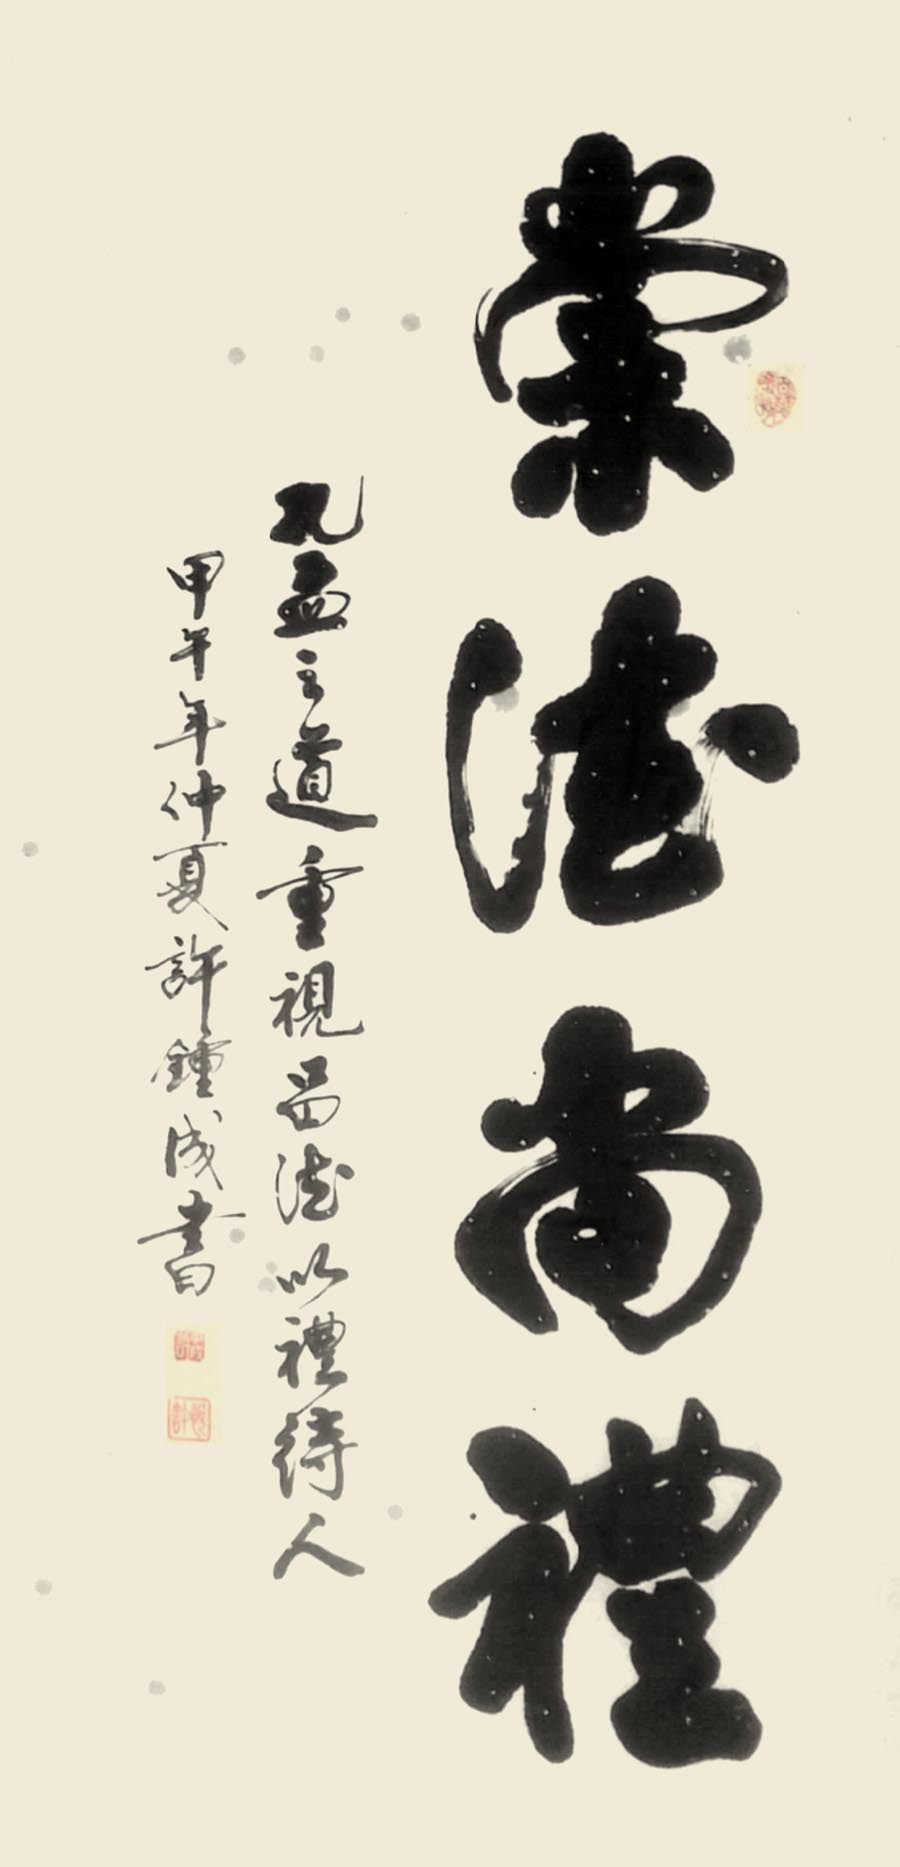 崇德尚禮
孔孟之道重視品德以禮待人
甲午年仲夏許鍾成書